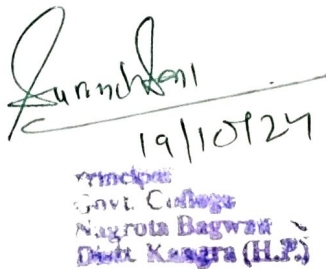 19/10/24
Principal
Govt. College
Nagrota Bagwan
Distt. Kangra (H.P.)